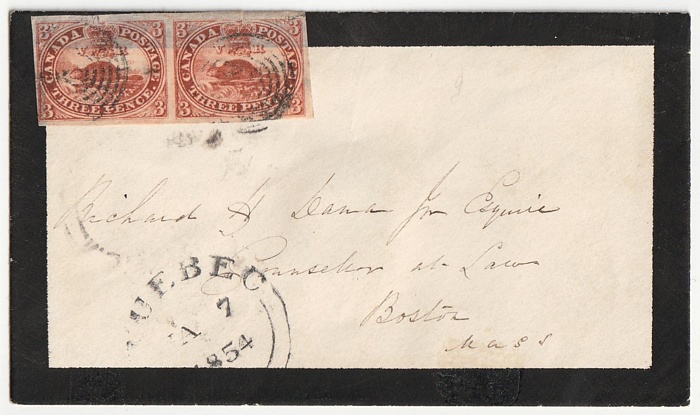 3 CANADA POSTAGE 3
V R
3 THREE PENCE 3
3 CANADA POSTAGE 3
V R
3 THREE PENCE 3
Richard H Dana Jr Esquire
Counselor at Law
Boston
Mass
QUEBEC
7
1854